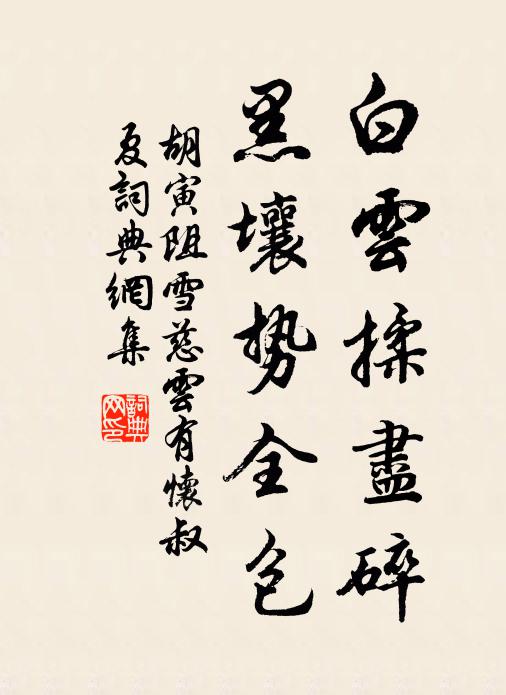 白雲揉盡碎
黑壤勢全包
胡寅阻雪慈雲有懷叔
夏詞典網集
詞典
网印